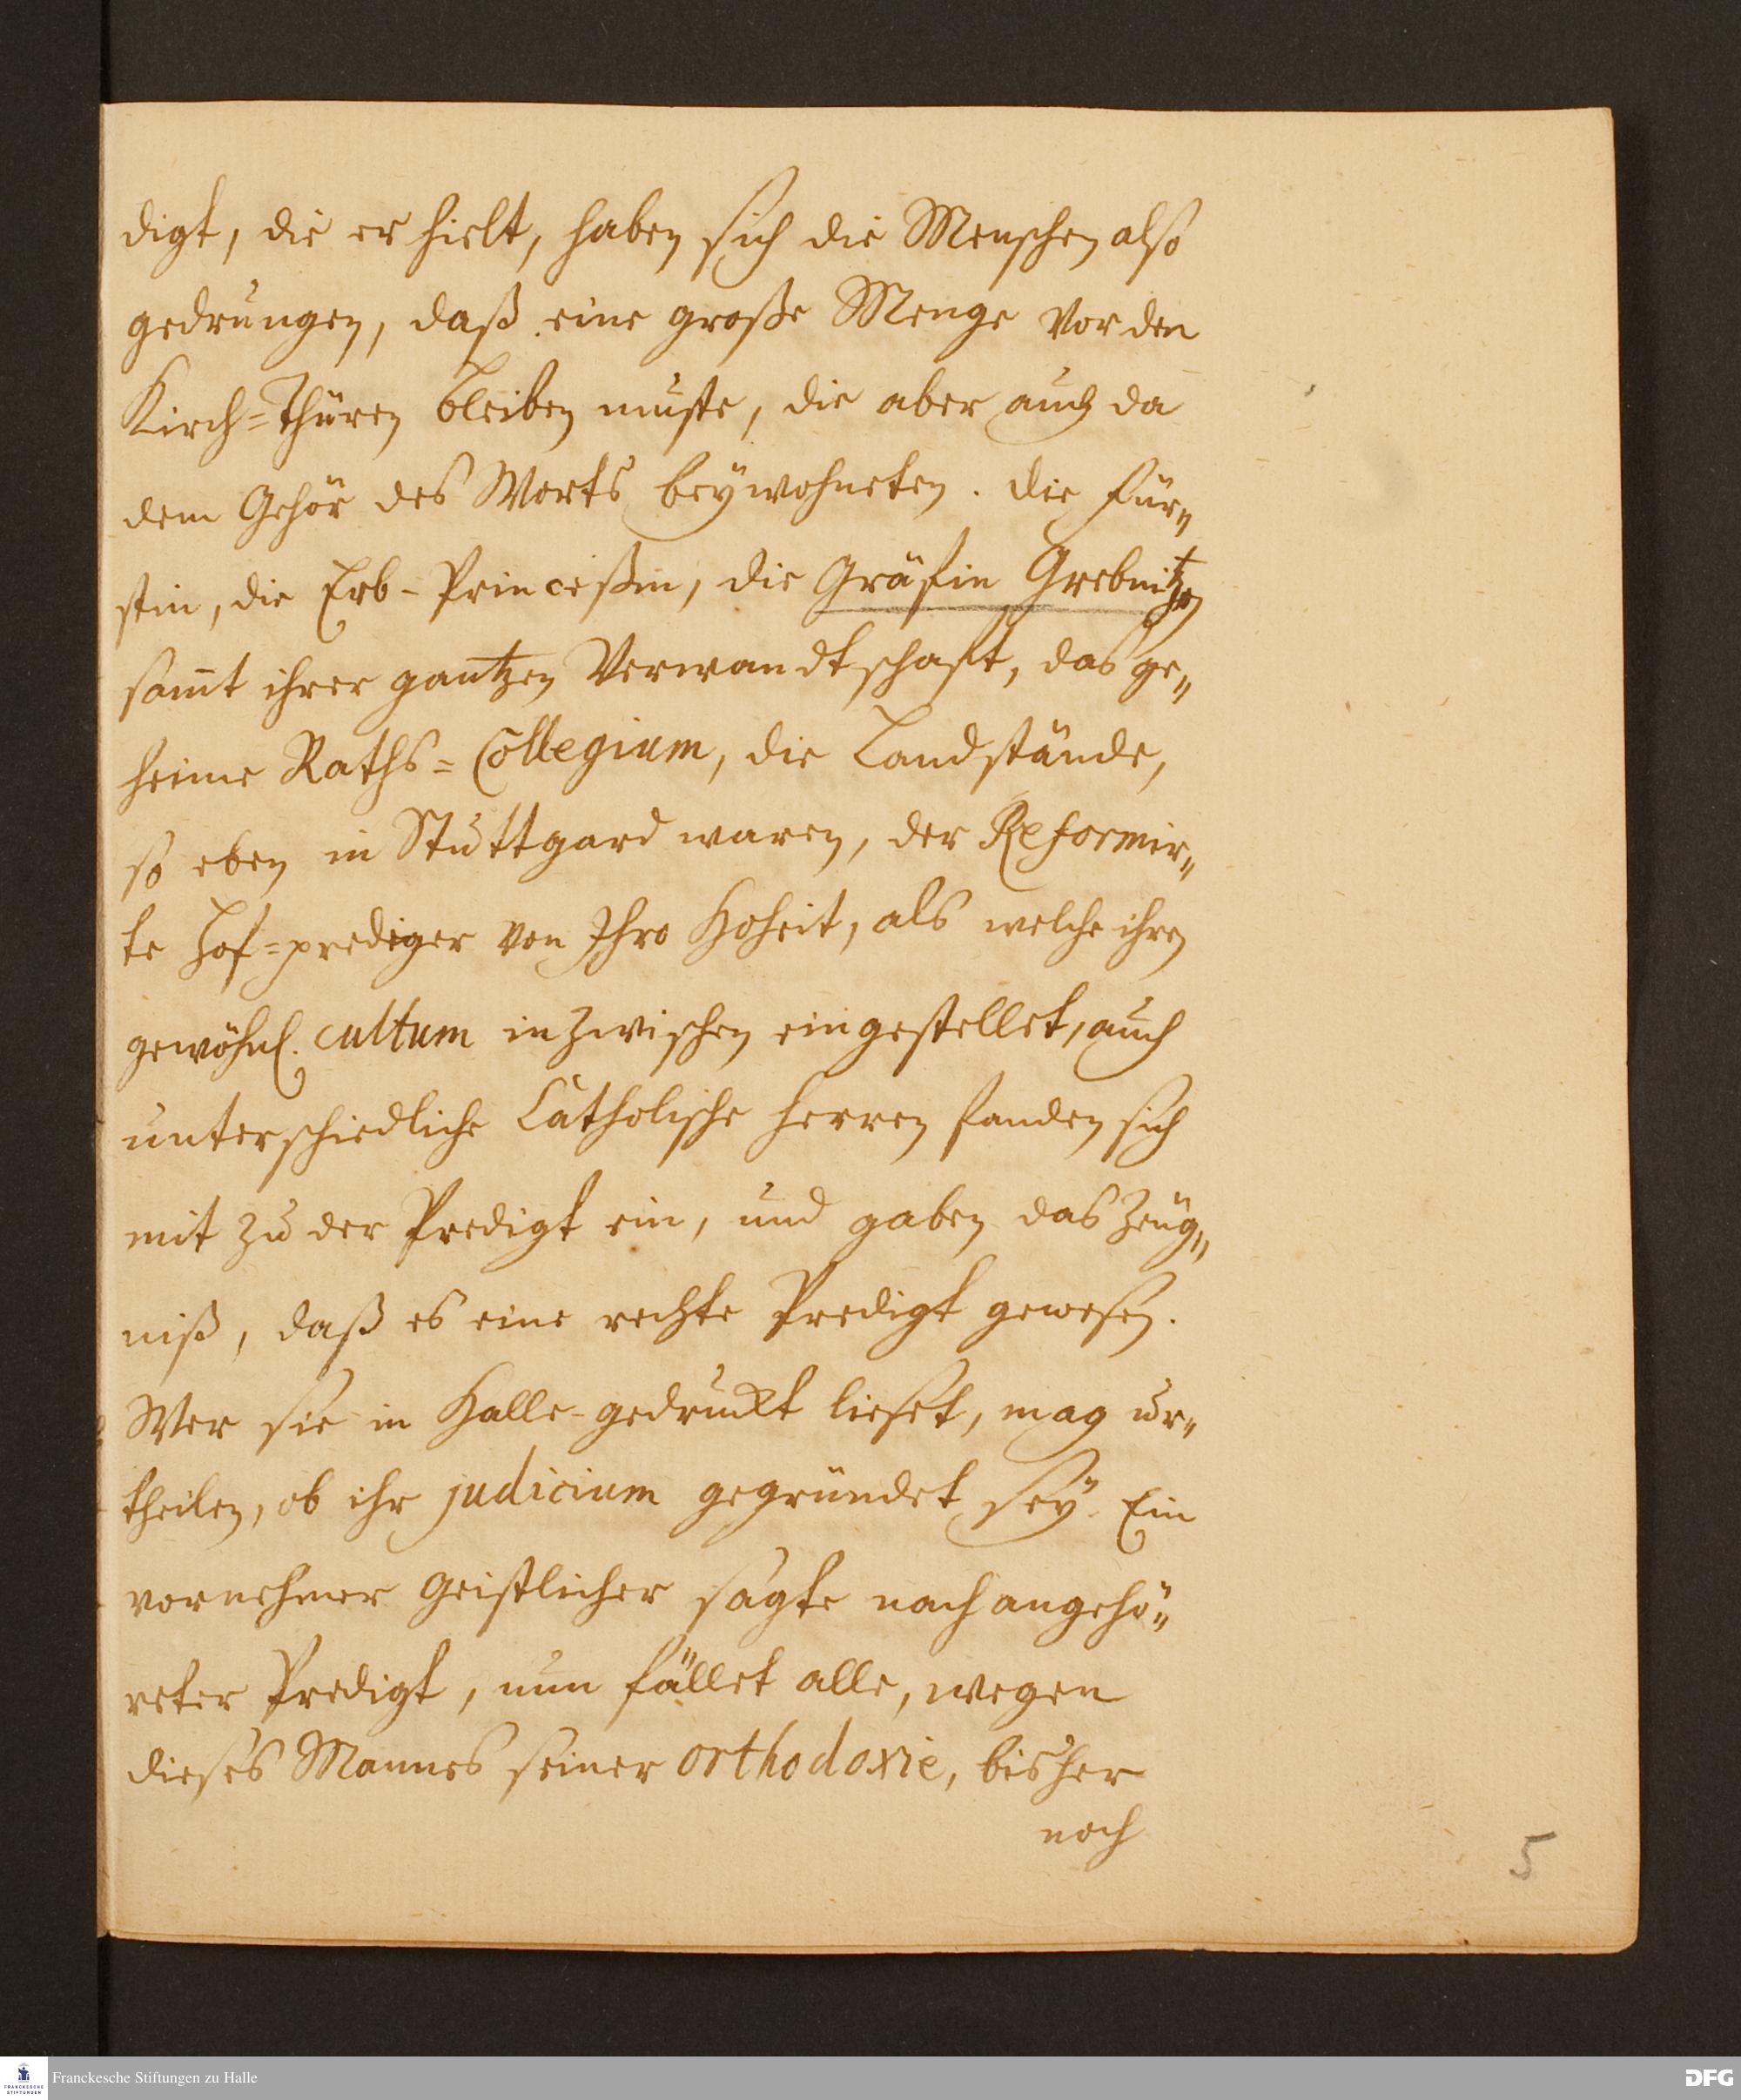 digt, die er hielt, haben sich die Menschen also
gedrungen, daß eine große Menge vor den
Kirch=Thüren bleiben muste, die aber auch da
dem Gehör des Worts beywohneten. die Für„
stin, die Erb-Princeßin, die Gräfin Grebnitzen
samt ihrer gantzen Verwandtschaft, das ge„
heime Raths=Collegium, die Landstände,
so eben in Stuttgard waren, der Reformir„
te Hof=prediger von Ihro Hoheit, als welche ihren
gewöhnl. cultum inzwischen eingestellet, auch
unterschiedliche Catholische Herren fanden sich
mit zu der Predigt ein, und gaben das Zeug„
niß, daß es eine rechte Predigt gewesen.
Wer sie in Halle gedruckt lieset, mag ur„
theilen, ob ihr judicium gegründet sey. Ein
vornehmer Geistlicher sagte nach angehö„
reter Predigt, nun fället alle, wegen
dieses Mannes seiner orthodoxie, bisher
noch
5
Franckesche Stiftungen zu Halle
FRANCKESCHE
STIFTUNGEN
DFG